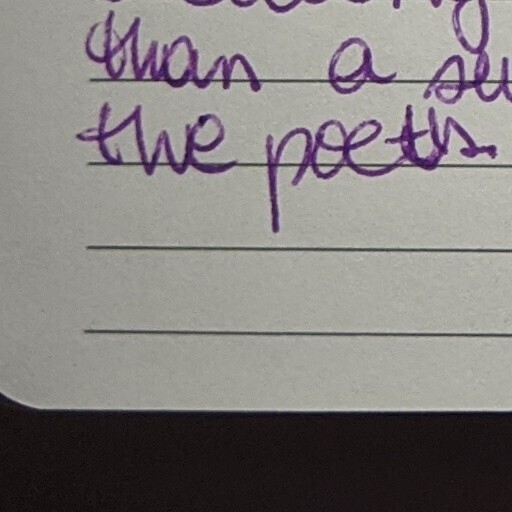 than a
the poets.